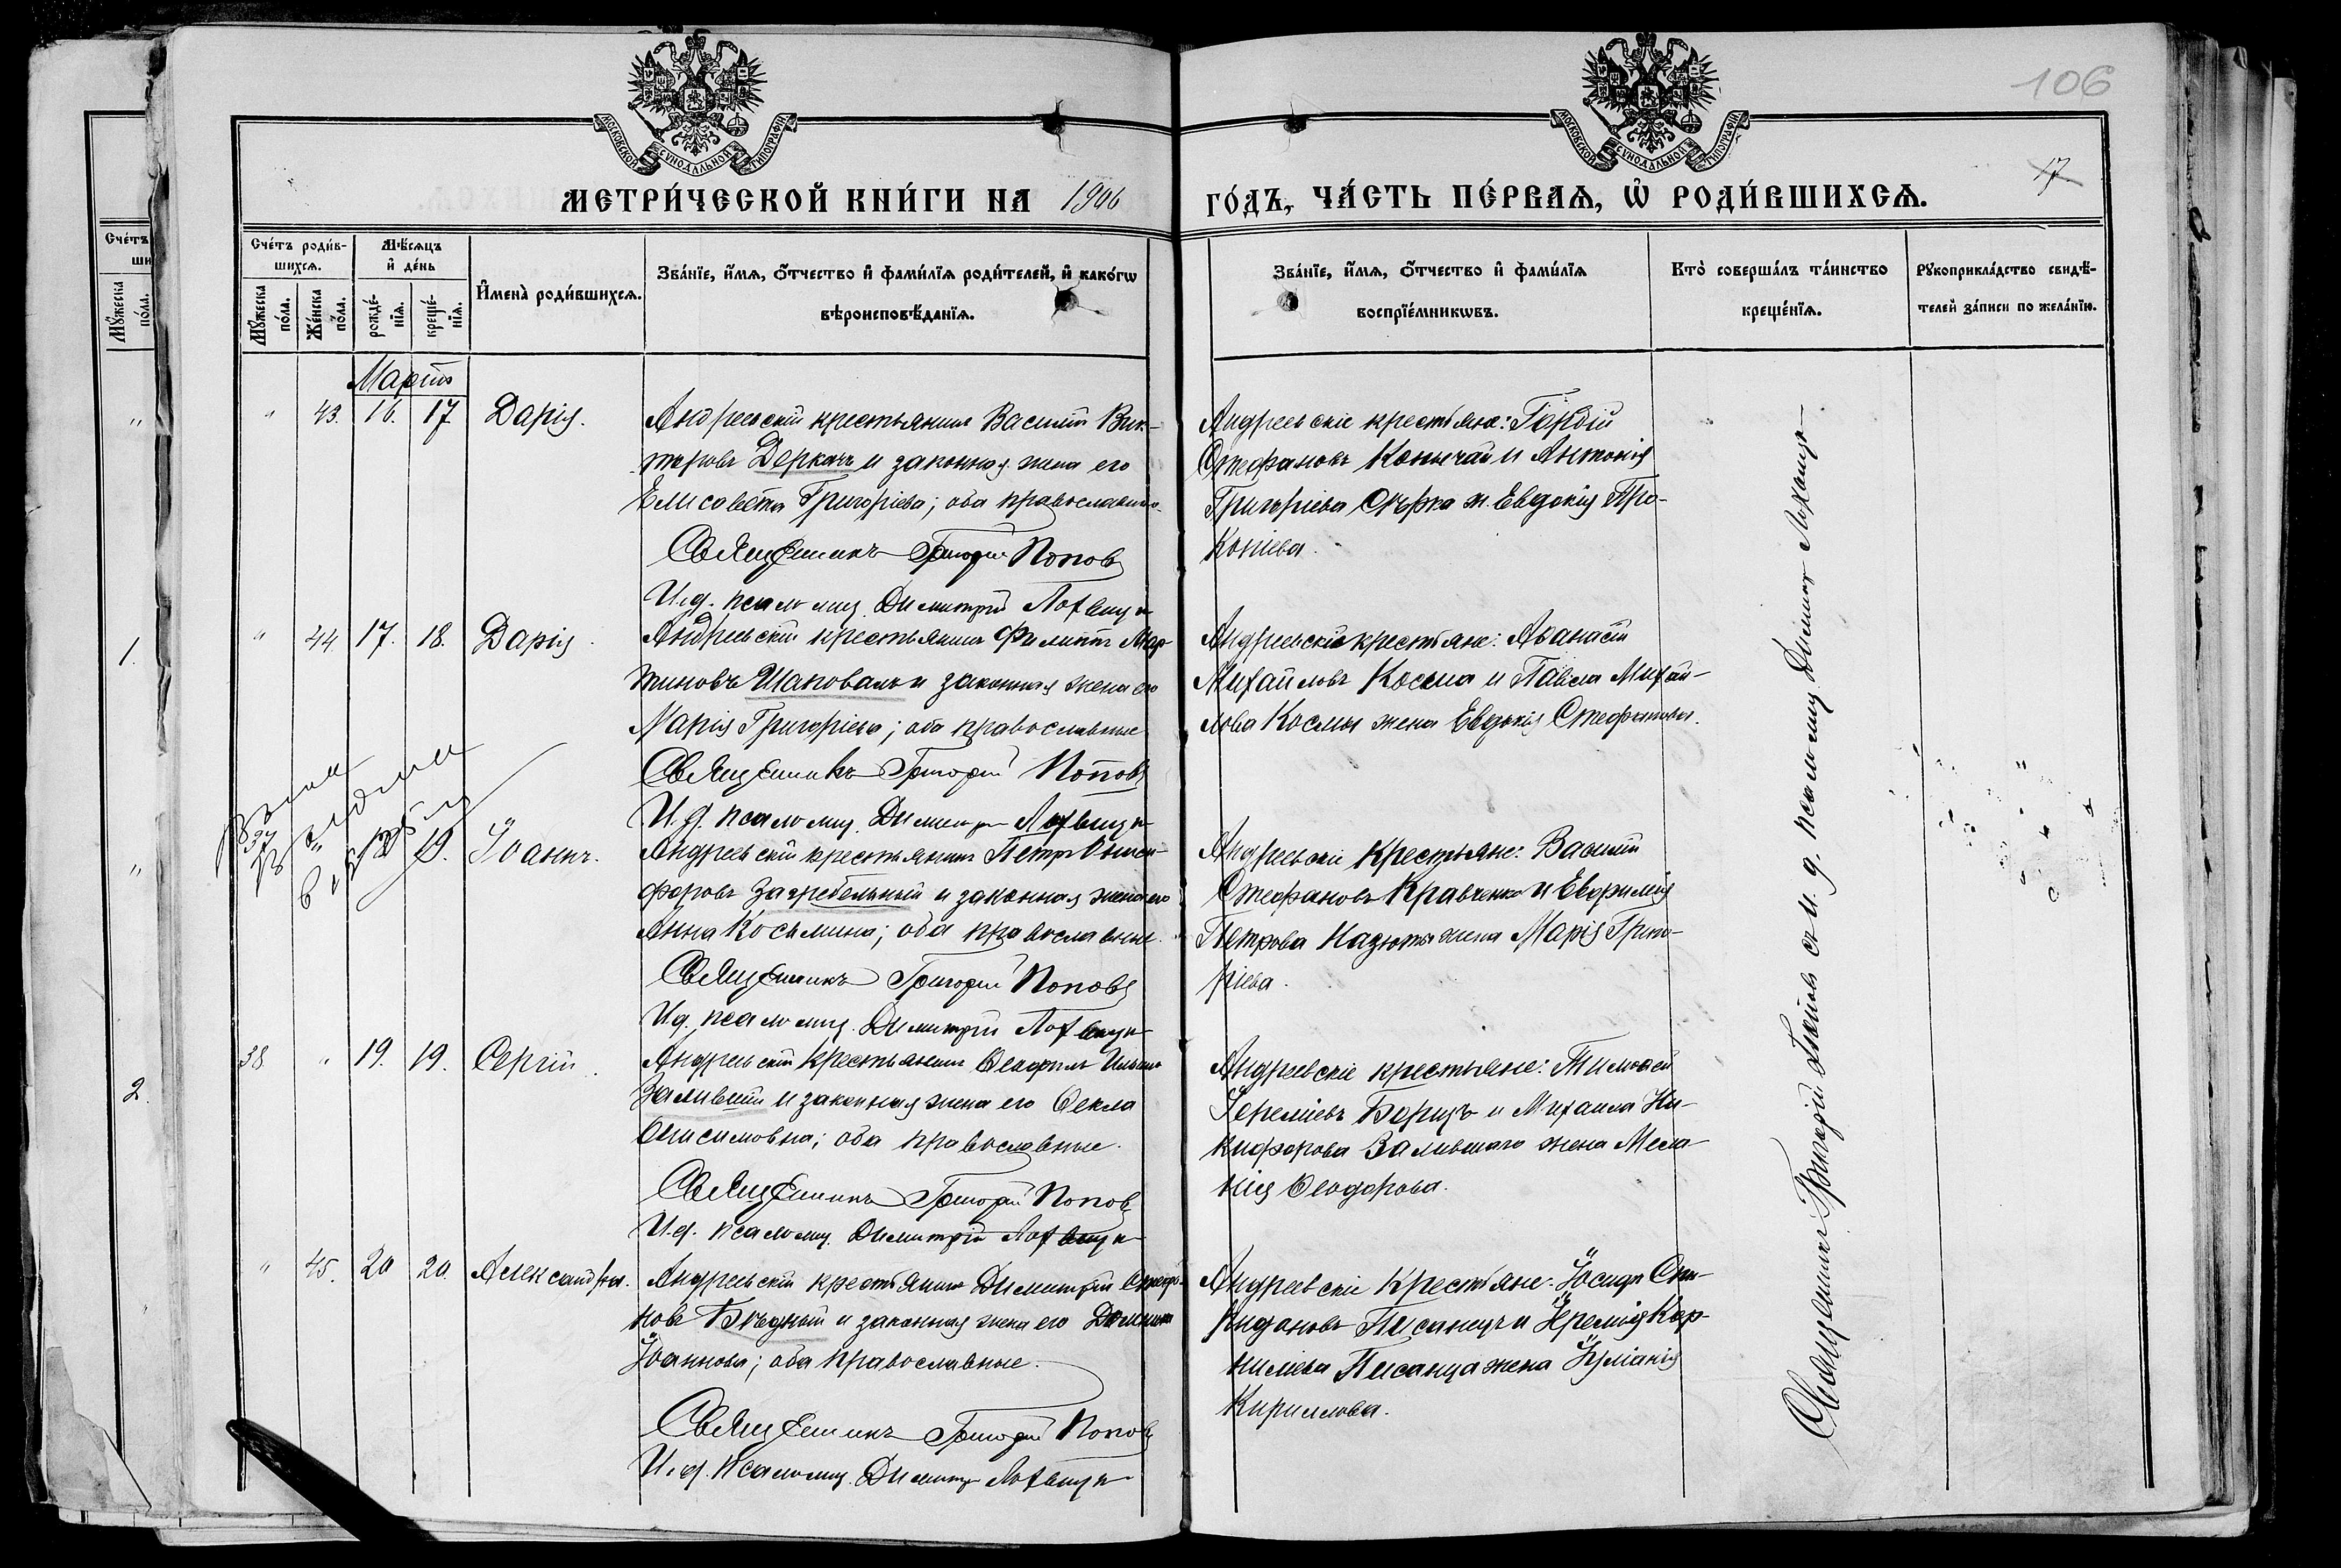 106
17
МОСКОВСКОЙ СѴНОДАЛЬНОЙ ТИПОГРАФІИ
МОСКОВСКОЙ СѴНОДАЛЬНОЙ ТИПОГРАФІИ
МЕТРИ́ЧЕСКОЙ КНИ́ГИ НА 1906 ГО́ДЪ, ЧА́СТЬ ПЕ́РВАѦ, Ѡ҆ РОДИ́ВШИХСѦ.
Сче́тъ
ши
Мꙋ́жеска
по́ла.
Сче́тъ роди́в-
шихсѧ.
Мꙋ́жеска
по́ла.
Же́нска
по́ла.
Мѣ́сѧцъ
и҆ де́нь
рожде́-
нїѧ.
креще́-
нїѧ.
И҆мена̀ роди́вшихсѧ.
Зва́нїе, и҆́мѧ, ѻ҆́тчество и҆ фами́лїѧ роди́телей, и҆ како́гѡ
вѣроисповѣ́данїѧ.
Зва́нїе, и҆́мѧ, ѻ҆́тчество и҆ фами́лїѧ
воспрїе́мникѡвъ.
Кто̀ соверша́лъ та́инство
креще́нїѧ.
Рꙋкоприкла́дство свидѣ́-
телей за́писи по жела́нїю.
Мартъ
" 43. 16. 17 Дарія.
Андреевскій крестьянинъ Василій Вик-
торовъ Деркачъ и законная жена его
Елисавета Григоріева; оба православные.
Священникъ Григорій Поповъ
И.д. псаломщ. Димитрій
Андреевскіе крестьяне: Гордій
Стефановъ Кониčай и Антонія
Григоріева ж. Евдокія Про-
копіева.
1.
" 44 17. 18. Дарія.
Андреевскій крестьянинъ Филиппъ Мар-
тиновъ Шаповалъ и законная жена его
Марія Григоріева; оба православные
Священникъ Григорій Поповъ
И.д. псаломщ. Димитр
Андреевскіе крестьяне: Аѳанасій
Михайловъ Косма и Павла Михай-
лова Космы жена Евдокія Стефанова.
37 " 19. Іоаннъ.
Андреевскій крестьянинъ Петръ Ониси-
форовъ Загребельный и законная жена его
Анна Косьмина; оба православные.
Священникъ Григорій Поповъ
И.д. псаломщ. Димитрій
Андреевскіе крестьяне: Василій
Стефановъ Кравченко и Евфимія
Петрова жена Марія Григо-
ріева.
2.
38. " 19. 19. Сергій.
Андреевскій крестьянинъ Ѳеофилъ Ильинъ
Залившій и законная жена его Ѳекла
Онисимовна; оба православные.
Священникъ Григорій Поповъ
И.д. псаломщ. Димитрій
Андреевскіе крестьяне: Тимоѳей
Іереміевъ Борецъ и Михаила Ни-
кифорова Залившаго жена Мела-
нія Ѳеодорова.
" 45. 20 20. Александра.
Андреевскій крестьянинъ Димитрій
новъ Бѣдный и законная жена его Домника
Іоаннова; оба православные.
Священникъ Григорій Поповъ
И.д. псаломщ. Димитр
Андреевскіе крестьяне: Іосифъ Спи-
ридоновъ Писанецъ и Іеремія Кор-
ниліева Писанца жена Іуліанія
Кириллова.
Священникъ Григорій Поповъ съ и. д. псаломщ. Димитр